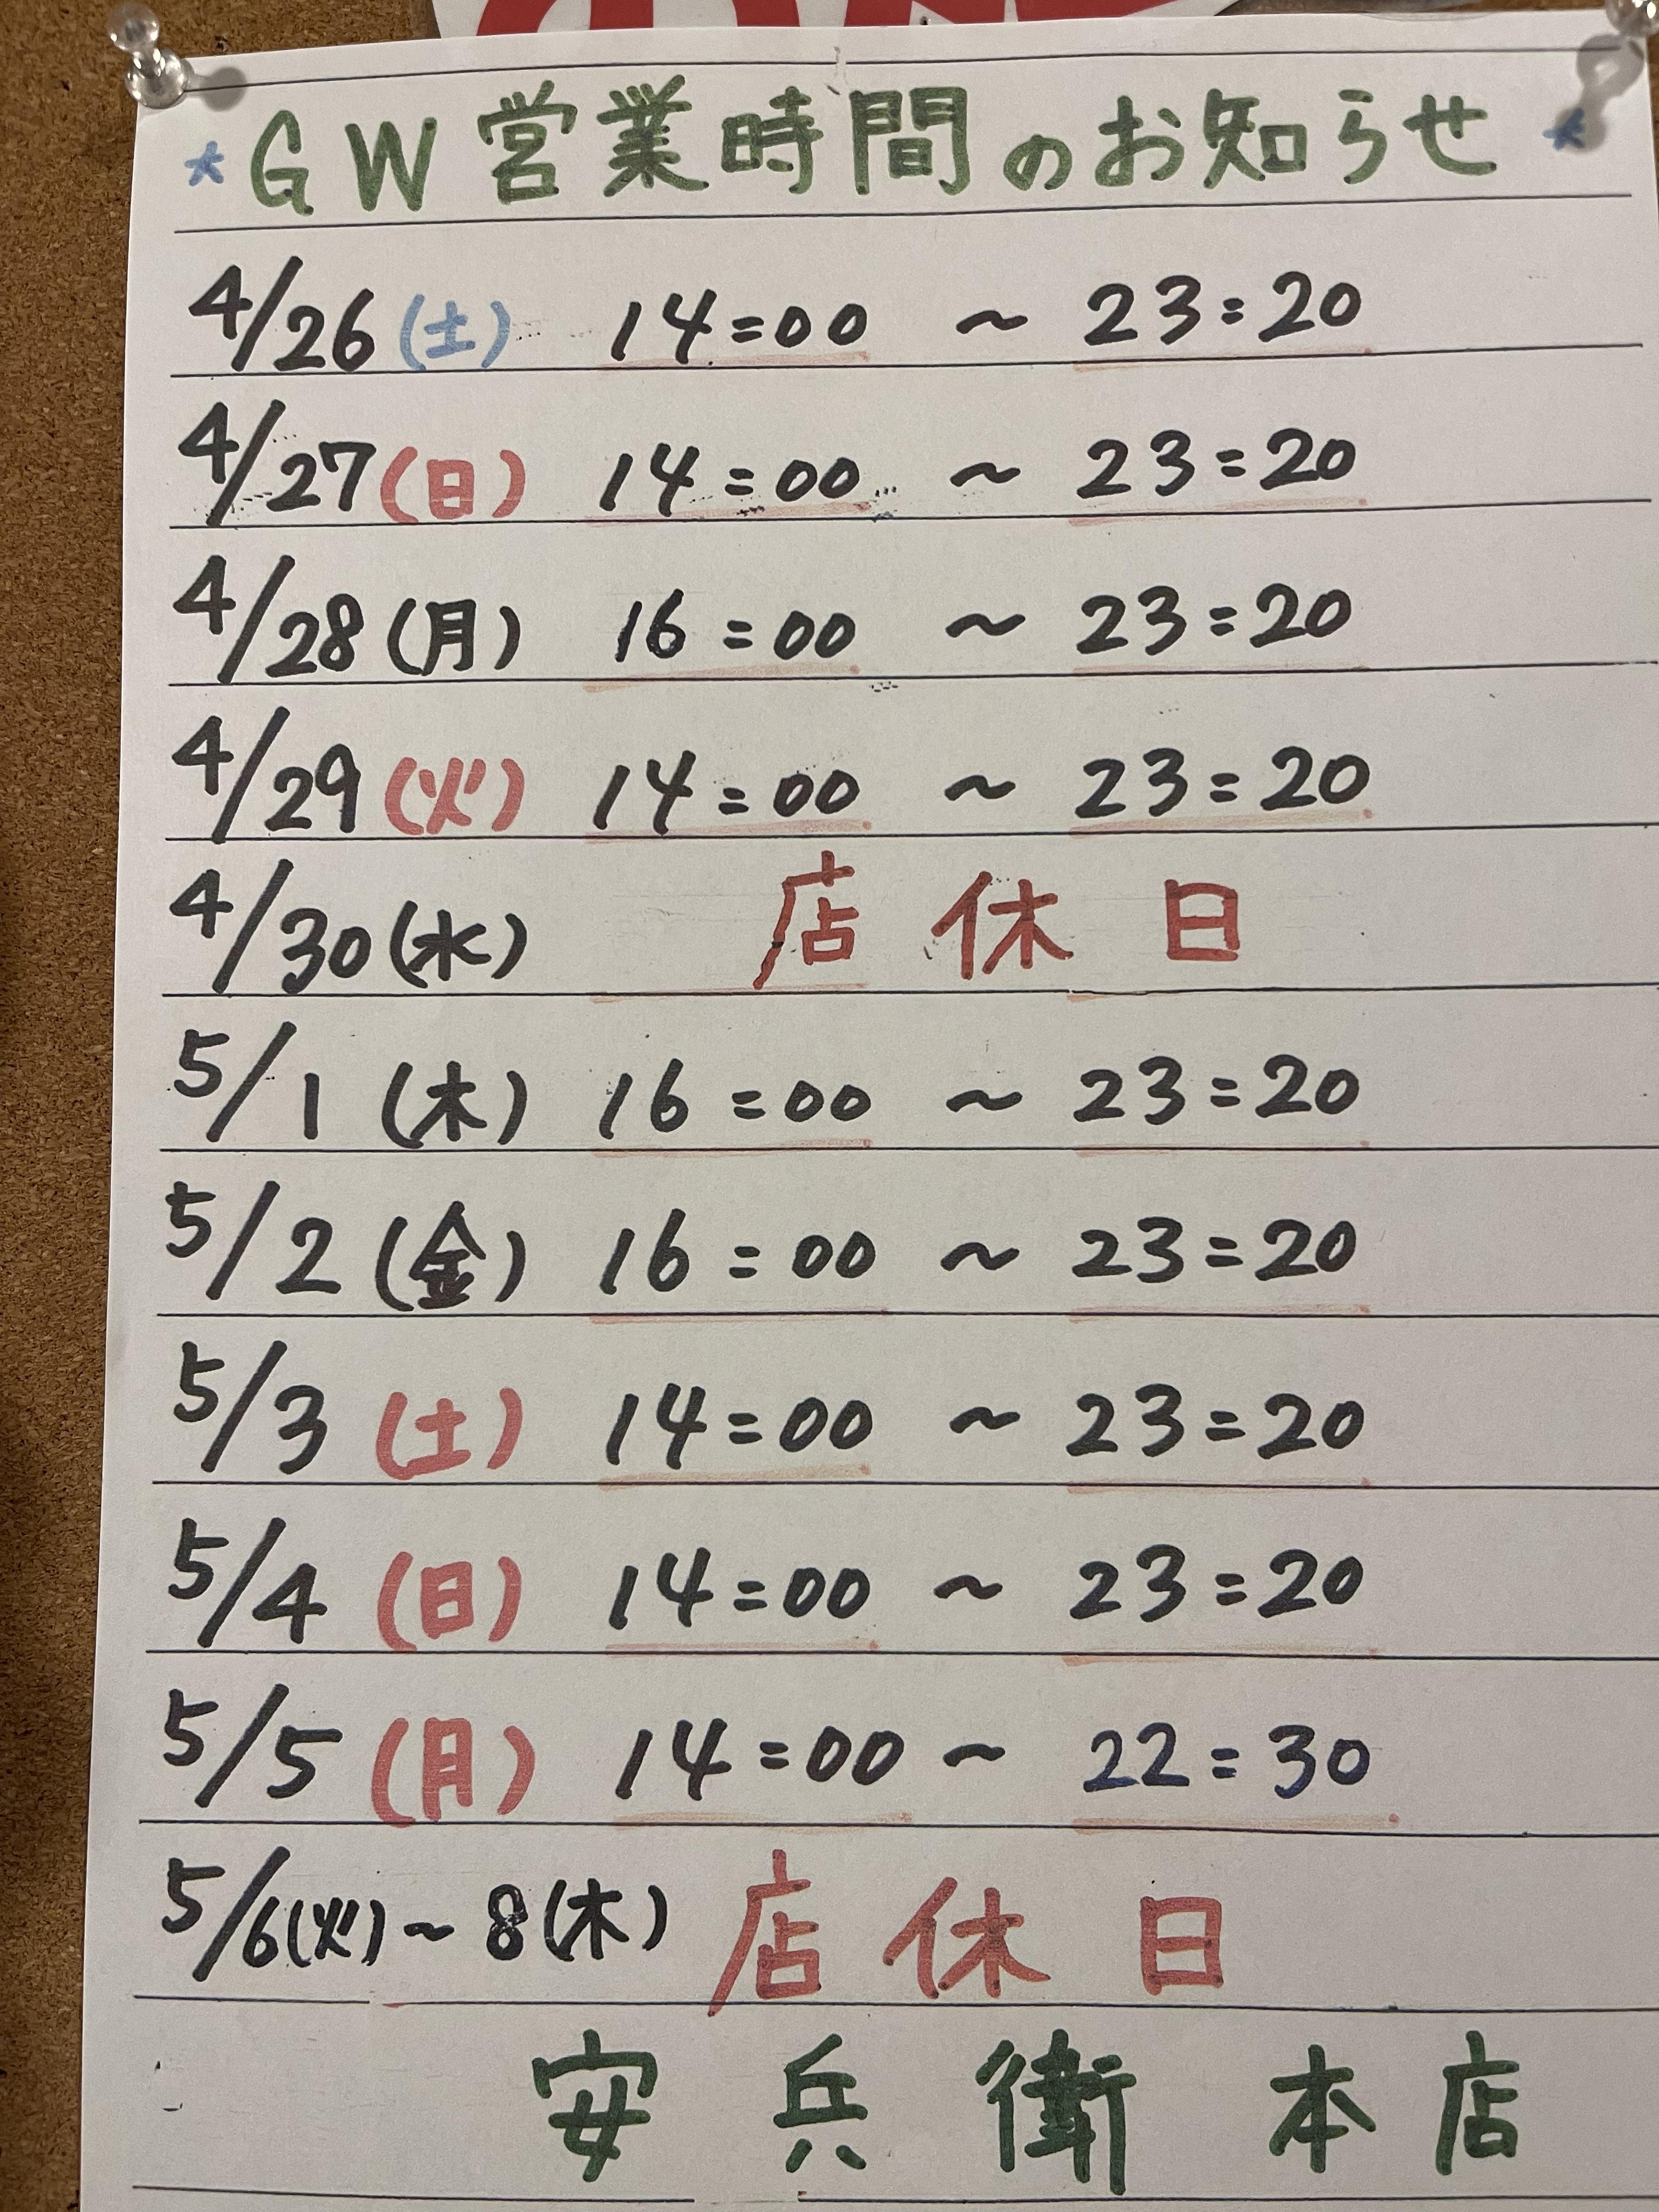 * GW営業時間のお知らせ *
4/26(土) 14:00 ~ 23:20
4/27(日) 14:00 ~ 23:20
4/28(月) 16:00 ~ 23:20
4/29(火) 14:00 ~ 23:20
4/30(水) 店休日
5/1(木) 16:00 ~ 23:20
5/2(金) 16:00 ~ 23:20
5/3(土) 14:00 ~ 23:20
5/4(日) 14:00 ~ 23:20
5/5(月) 14:00 ~ 22:30
5/6(火)~8(木) 店休日
安兵衛本店